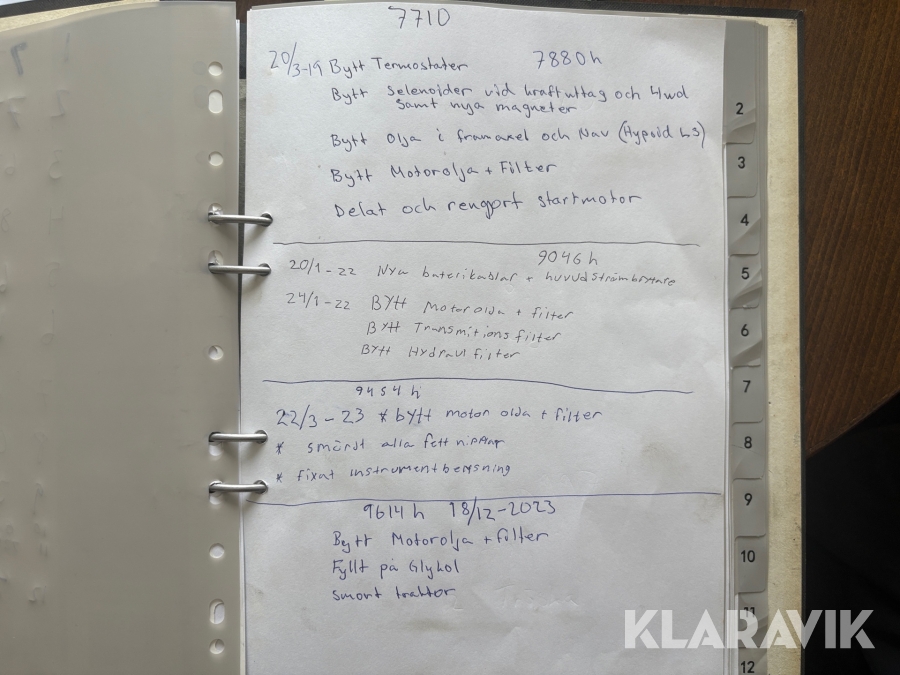 7710
20/3-19 Bytt Termostater 7880h
Bytt Selenoider vid kraftuttag och 4wd
samt nya magneter
Bytt olja i framaxel och Nav (Hypoid LS)
Bytt Motorolja + Filter
Delat och rengort startmotor
9046 h
20/1-22 Nya baterikablar + huvudströmbrytare
24/1-22 Bytt Motor olja + filter
Bytt Transmitions filter
Bytt Hydraul filter
9454 h
22/3-23 * bytt motor olja + filter
* smörjt alla fett nipplar
* fixat instrumentbelysning
9614 h 18/12-2023
Bytt Motorolja + filter
Fyllt på Glykol
Smort traktor
2
3
4
5
6
7
8
9
10
11
12
KLARAVIK